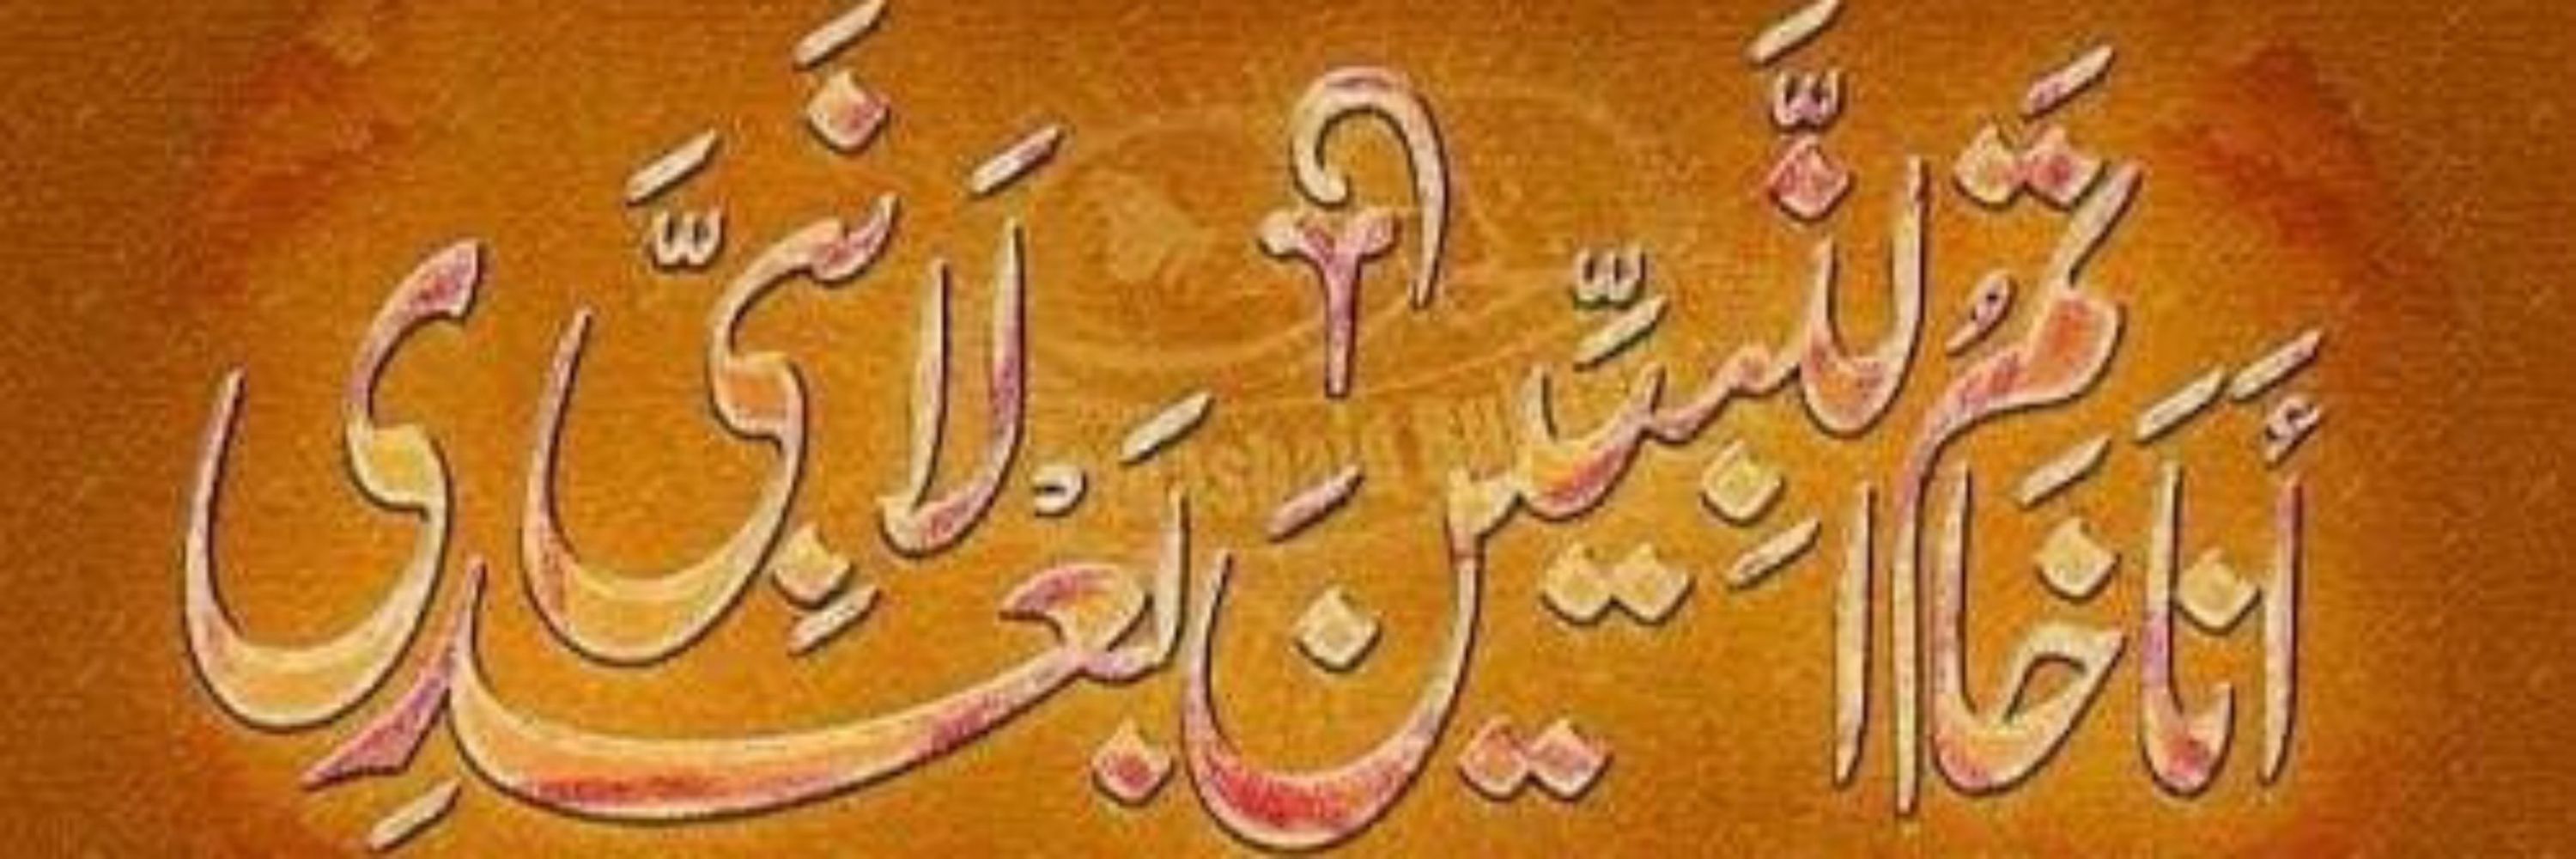 أَنَا خَاتَمُ النَّبِيِّينَ لَا نَبِيَّ بَعْدِي